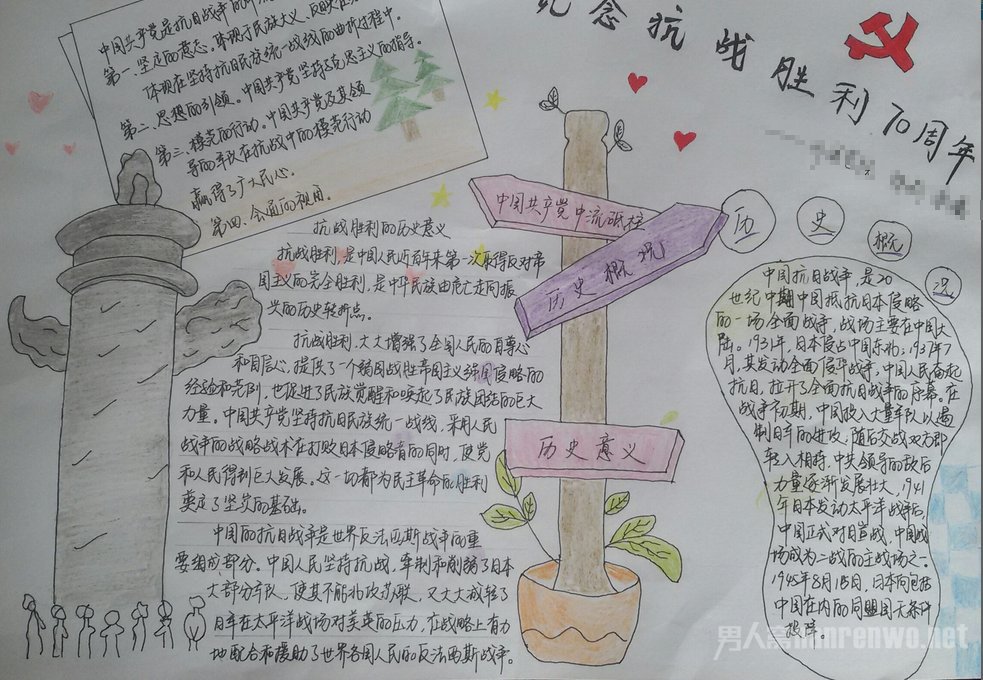 纪念抗战胜利70周年
中国共产党是抗日战争的中
第一、坚定的意志。体现于民族大义、反映在
体现在坚持抗日民族统一战线的曲折过程中。
第二、思想的引领。中国共产党坚持马克思主义的指导。
第三、模范的行动。中国共产党及其领
导的军队在抗战中的模范行动
赢得了广大民心。
第四、合适的视角。
抗战胜利的历史意义
抗战胜利,是中国人民近百年来第一次取得反对帝
国主义的完全胜利,是中华民族由危亡走向振
兴的历史转折点。
抗战胜利,大大增强了全国人民的自尊心
和自信心,提供了一个弱国战胜帝国主义强国侵略的
经验和先例,也促进了民族觉醒和唤起了民族团结的巨大
力量。中国共产党坚持抗日民族统一战线,采用人民
战争的战略战术在打败日本侵略者的同时,使党
和人民得到巨大发展。这一切都为民主革命的胜利
奠定了坚实的基础。
中国的抗日战争是世界反法西斯战争的重
要组成部分。中国人民坚持抗战,牵制和削弱了日本
大部分军队,使其不能北攻苏联,又大大减轻了
日军在太平洋战场对美英的压力,在战略上有力
地配合和援助了世界各国人民的反法西斯战争。
中国共产党中流砥柱
历史概况
历史意义
历史概况
中国抗日战争,是20
世纪中期中国抵抗日本侵略
的一场全面战争,战场主要在中国大
陆。1931年,日本侵占中国东北;1937年7
月,其发动全面侵华战争,中国人民奋起
抗日,拉开了全面抗日战争的序幕。在
战争初期,中国投入大量军队以遏
制日军的进攻,随后交战双方即
转入相持,中共领导的敌后
力量逐渐发展壮大,1941
年日本发动太平洋战争后,
中国正式对日宣战,中国战
场成为二战的主战场之一
1945年8月15日,日本向包括
中国在内的同盟国无条件
投降。
男人窝nanrenwo.net